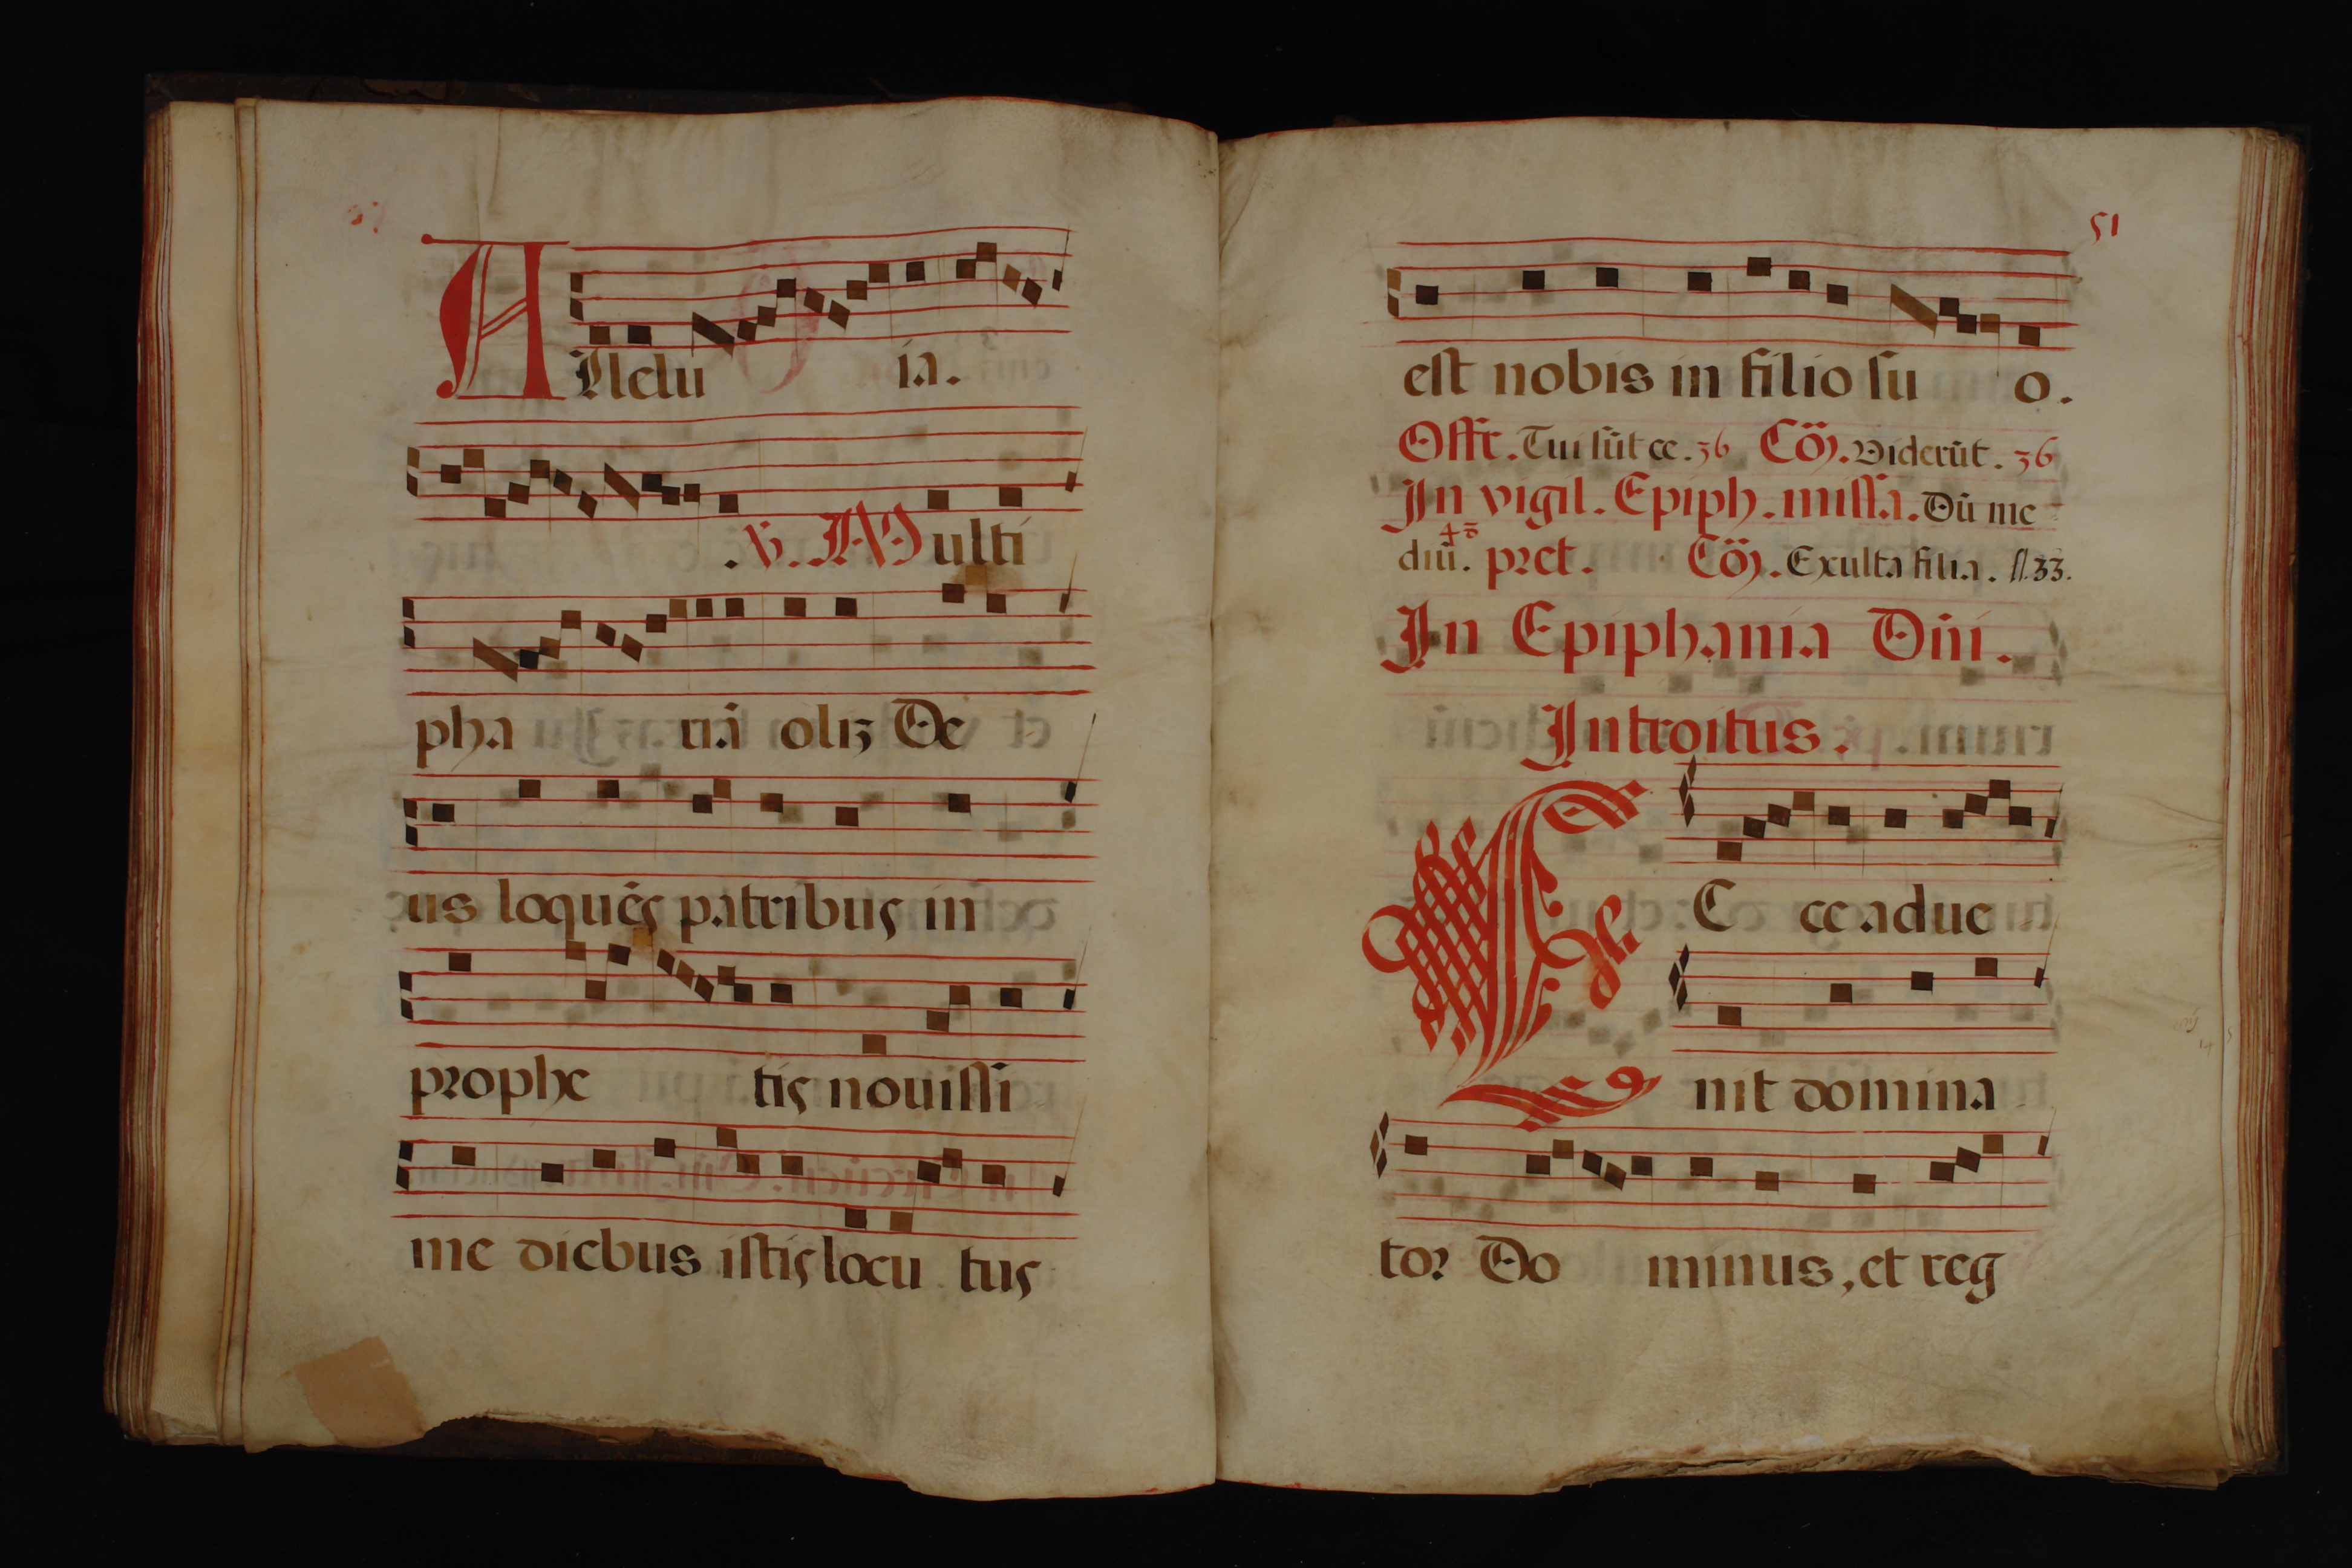 Alleluia.
℣. Multi
phariā oliʒ De
us loquēs patribus in
prophetis nouissi
me diebus istis locutus
51
est nobis in filio suo.
Offr. Tui sūt ce. 36 Cōʒ. Viderūt. 36
In vigil. Epiph. missa. Dū me
diū. 42 pret. Cōʒ. Exulta filia. fl. 33.
In Epiphania Dñi.
Introitus.
ECce adue
nit domina
tor Dominus, et reg